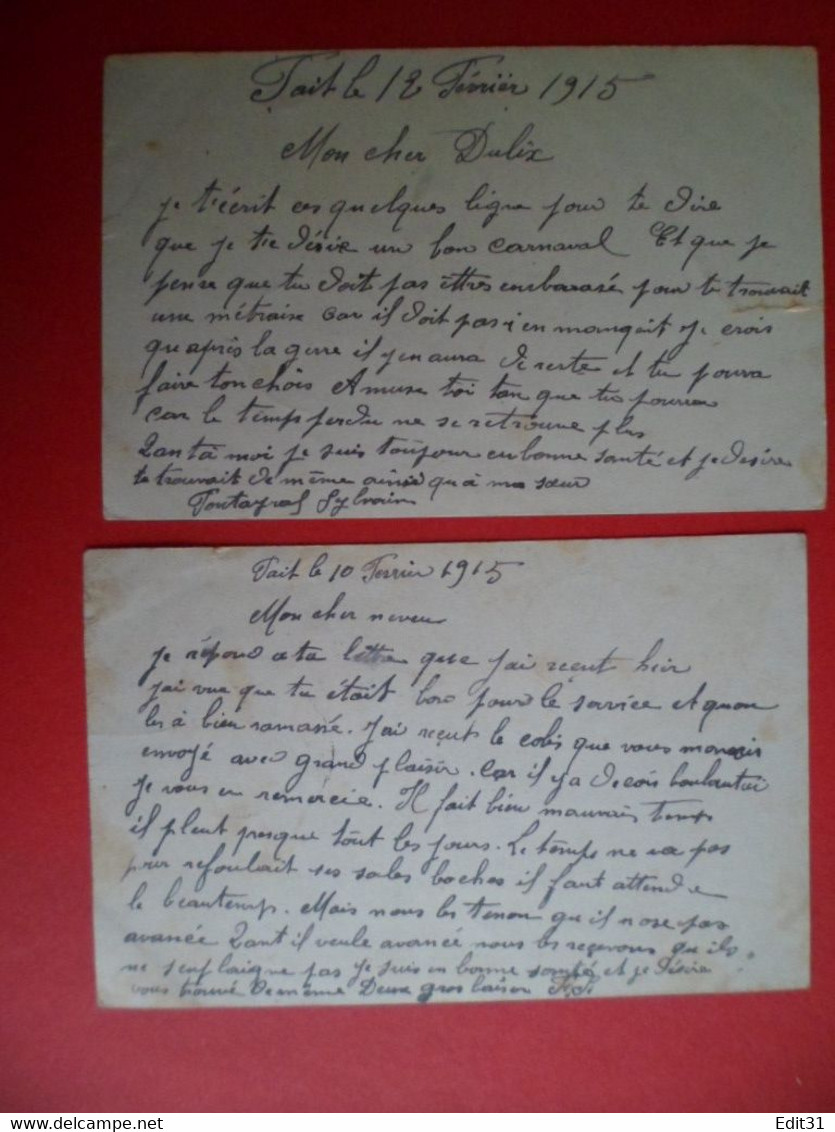 Fait le 12 Février 1915
Mon cher Dulix
je t'écrit ces quelques ligne pour te dire
que je te désire un bon carnaval Et que je
pense que tu doit pas êttres enbarasé pour te trouvait
une métraise car il doit pas en manqait je crois
qu après la gerre il y en aura de reste et tu pourra
faire ton chois Amuse toi tan que tu pourra
car le temps perdu ne se retrouve plus
Qant à moi je suis toujour en bonne santé et je desire
te trouvait de même ainsi qu à ma sœur
Sylvain
Fait le 10 Fevrier 1915
Mon cher neveu
Je répond a ta lettre que j'ai reçut heir
j'ai vue que tu était bon pour le service et quon
les à bien ramassé. J'ai reçut le colis que vous
envoyé avec grand plaisir. Car il y a de
Je vous en remercie. Il fait bien mauvais temps
il pleut presque tout les jours. Le temps ne va pas
pour refoulait ses sales boches il faut attendre
le beautemps. Mais nous les tenon qu il nose pas
avancée Qant il veule avancé nous les reçevons qu ils
ne pas Je suis en bonne santé et je désire
vous trouvé de même Deux gros